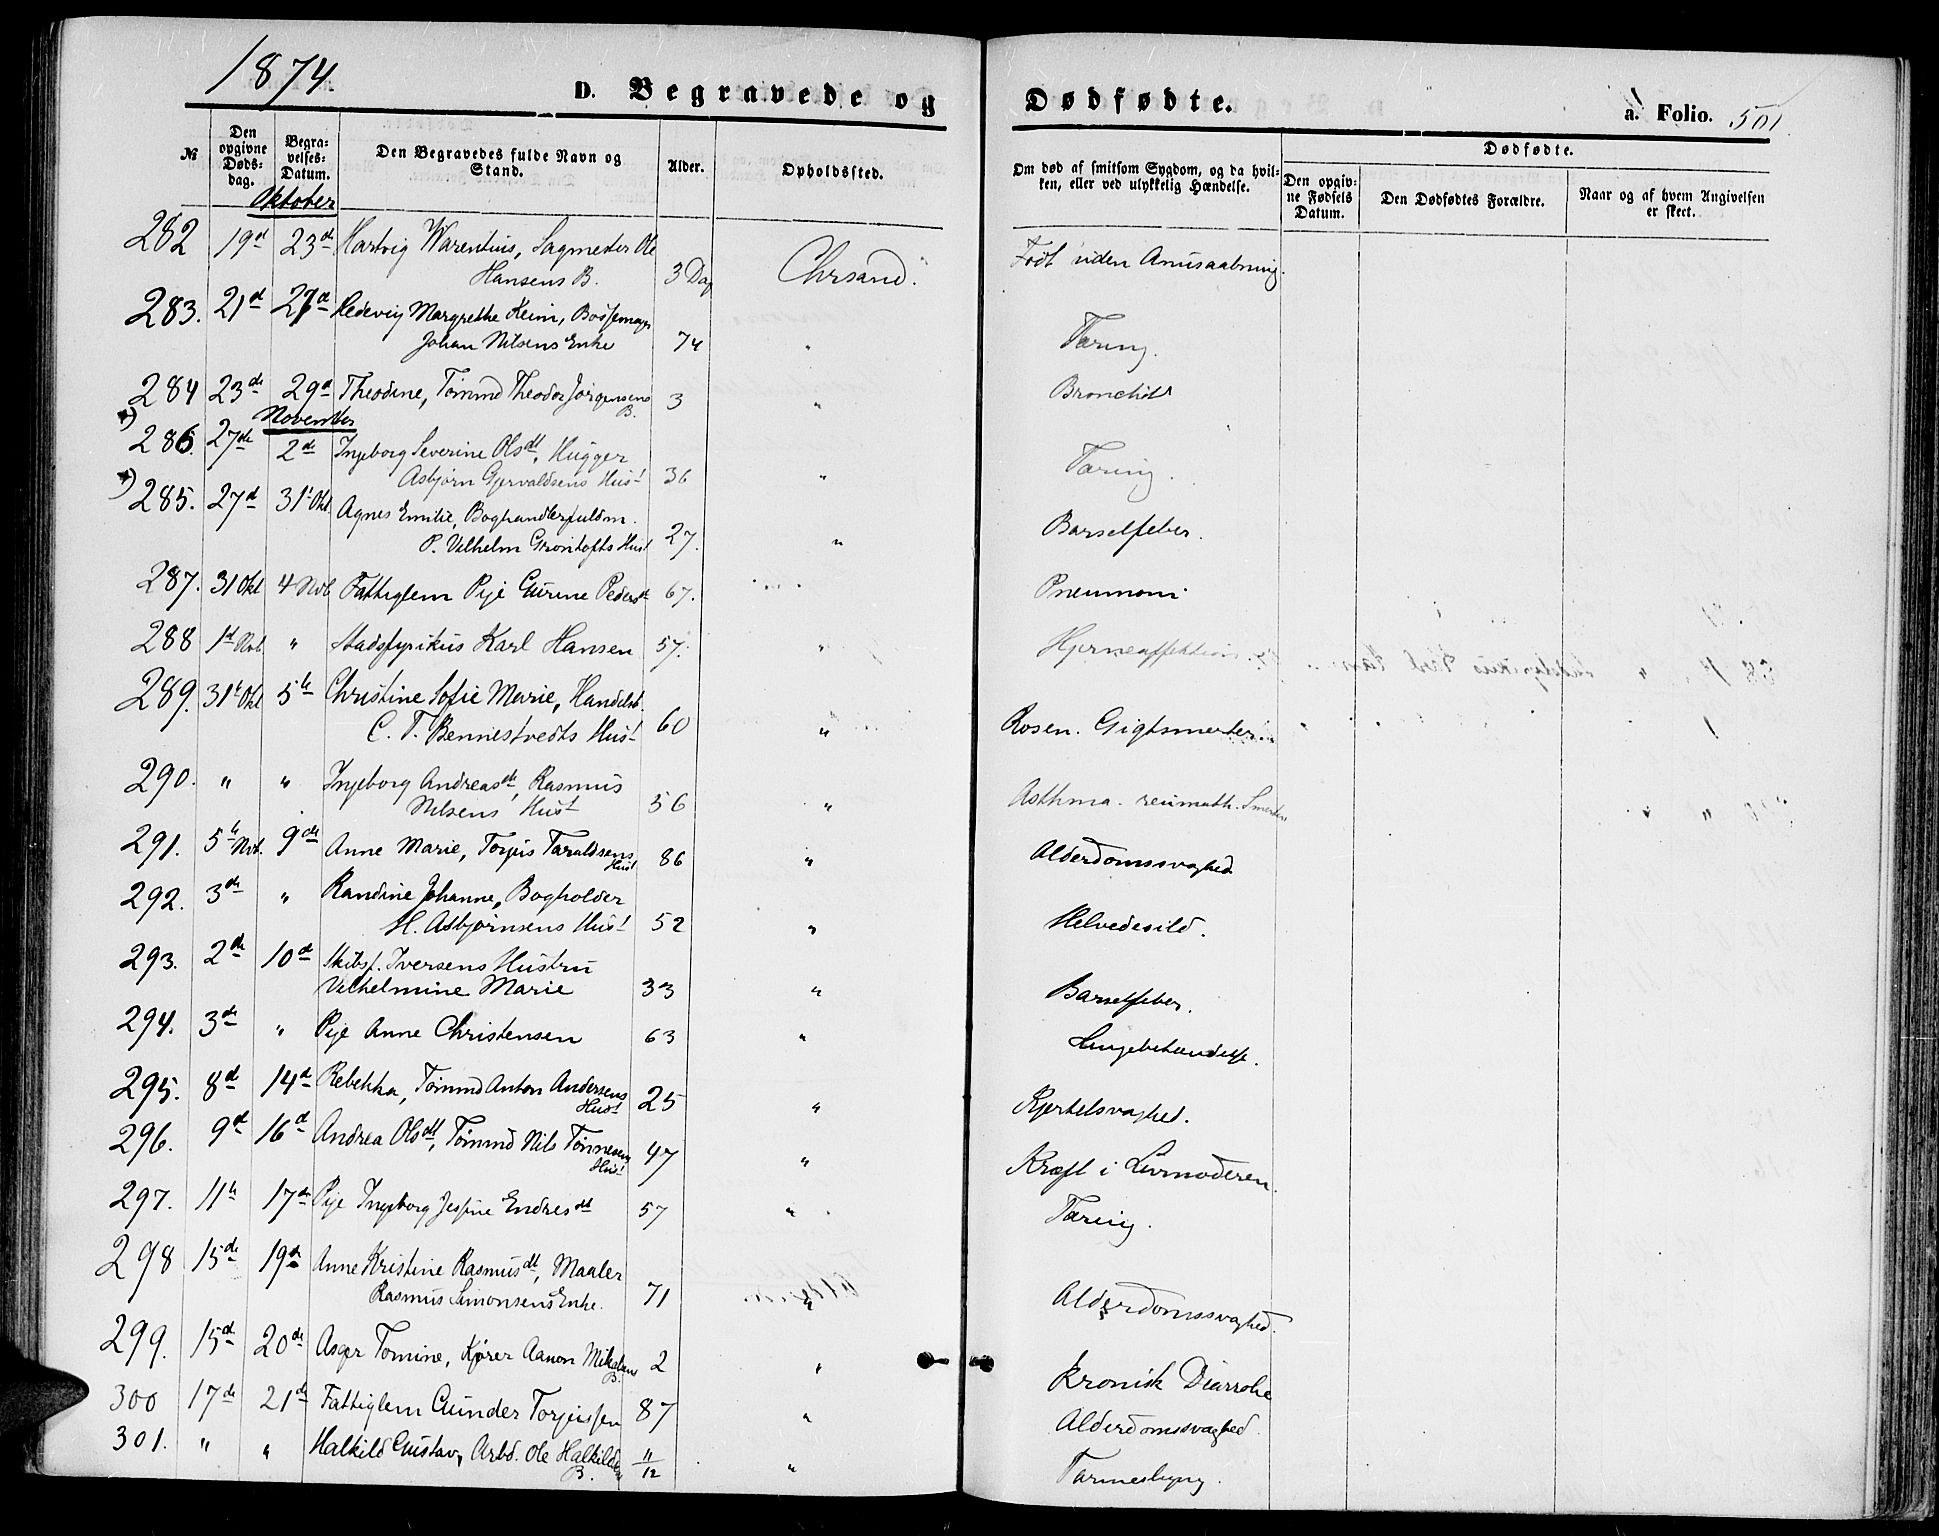 1874
D. Begravede og Dødfødte.
a. Folio. 501
№
Den opgivne Døds-dag.
Begra-velses-Datum.
Den Begravedes fulde Navn og Stand.
Alder.
Opholdssted.
Om død af smitsom Sygdom, og da hvil-ken, eller ved ulykkelig Hændelse.
Dødfødte.
Den opgiv-ne Fødsels Datum.
Den Dødfødtes Forældre.
Naar og af hvem Angivelsen er skeet.
Oktober
282 19d 23d Hartvig Warentius, Sagmester Ole
Hansens B. 3 Dag Chrsand. Født uden Anusaabning.
283. 21d 27d Hedevig Margrethe Keim,
Johan Nilsens Enke 74 " Tæring.
284 23de 29d Theodine, Tømmd Theodor Jørgensens
B. 3 " Bronchit
November
*) 286. 27de 2de Ingeborg Severine Olsdt, Hugger
Asbjørn Gjervaldsens Hust 36 " Tæring.
*) 285. 27d 31t Okt Agnes Emilie, Boghandlerfuldm.
P. Vilhelm Grontofts Hust 27. " Barselfeber.
287. 31 Okt 4 Nvb Fattiglem Pige Gurine Pedersdt 67. " Pneumoni
288 1st Nvb. " Stadsfysikus Karl Hansen 57. " Hjerneaffektion
289. 31t Okt 5te Christine Sofie Marie, Handelsb.
C. T. Bennestvedts Hust 60 " Rosen. Gigtsmerter
290. " " Ingeborg Andreasdt, Rasmus
Nilsens Hust 56 " Asthma. reumath. Smerter
291. 5te Nvb. 9de Anne Marie, Torjus Taraldsens
Hust 86 " Alderdomssvaghed
292. 3de " Randine Johanne, Bogholder
H. Asbjørnsens Hust 52 " Helvedesild.
293. 2de 10d Skibsf. Iversens Hustru
Vilhelmine Marie 33 " Barselfeber.
294. 3de " Pige Anne Christensen 63 " Lungebetændelse.
295. 8d 14d Rebekka, Tømmd Anton Andersens
Hust 25 " Kjertelsvaghed.
296. 9d 16d Andrea Olsdt, Tømmd Nils Tønnesens
Hust 47 " Kræft i Livmoderen.
297. 11te 17de Pige Ingeborg Jesine Endresdt 57 " Tæring.
298 15de 19de Anne Kristine Rasmusdt, Maaler
Rasmus Simonsens Enke. 71 " Alderdomssvaghed.
299. 15d 20de Asger Tomine, Kjører Aanon Mikalsens
B. 2 " Kronisk Diarrohe
300 17de 21de Fattiglem Gunder Torjussen 87 " Alderdomssvaghed
301. " " Halkild Gustav, Arbd. Ole Halkildsens
B. 11/12 "